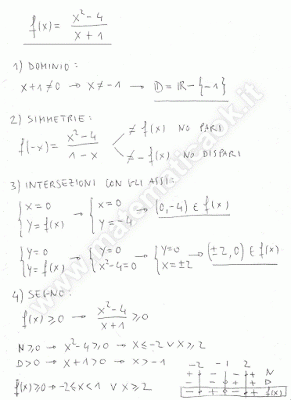 f(x) = x²-4 / x+1
1) DOMINIO:
x+1≠0 → x≠-1 → D = ℝ - {-1}
2) SIMMETRIE:
f(-x) = x²-4 / 1-x < ≠ f(x) NO PARI
≠ -f(x) NO DISPARI
3) INTERSEZIONI CON GLI ASSI:
{ x=0 → { x=0 → (0,-4) ∈ f(x)
{ y=f(x) { y=-4
{ y=0 → { y=0 → { y=0 → (±2,0) ∈ f(x)
{ y=f(x) { x²-4=0 { x=±2
4) SEGNO:
f(x)≥0 → x²-4 / x+1 ≥0
N≥0 → x²-4≥0 → x≤-2 ∨ x≥2
D>0 → x+1>0 → x>-1
f(x)≥0 → -2≤x<1 ∨ x≥2
-2 -1 2
+ - - + N
- - + + D
- + - + f(x)
www.matematicaok.it